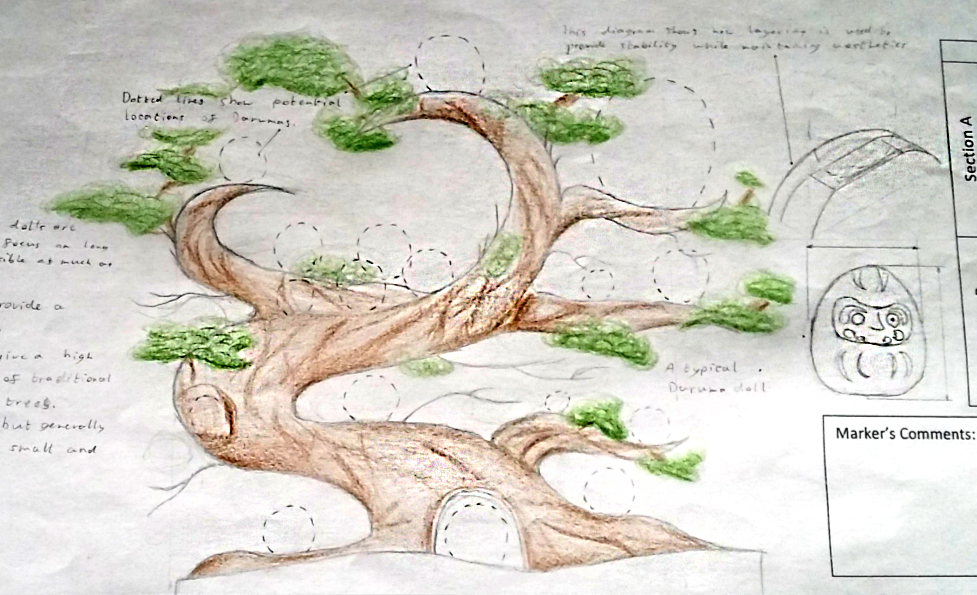 This diagram shows how layering is used to
provide stability while maintaining aesthetics
Dotted lines show potential
locations of Darumas.
dolls are
focus on long
as much as
provide a
give a high
of traditional
trees.
but generally
small and
A typical
Daruma doll
Section A
Marker's Comments: